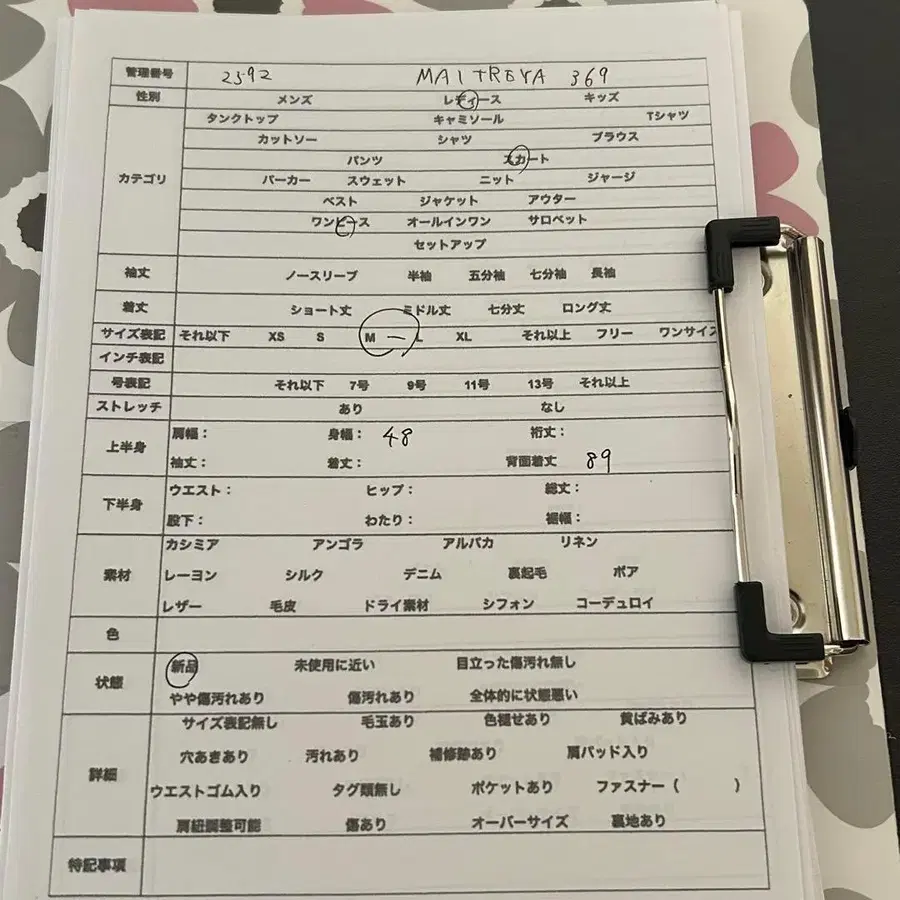 管理番号 2592 MAITREYA 369
性別 メンズ レディース キッズ
カテゴリ タンクトップ キャミソール Tシャツ
カットソー シャツ ブラウス
パンツ スカート
パーカー スウェット ニット ジャージ
ベスト ジャケット アウター
ワンピース オールインワン サロペット
セットアップ
袖丈 ノースリーブ 半袖 五分袖 七分袖 長袖
着丈 ショート丈 ミドル丈 七分丈 ロング丈
サイズ表記 それ以下 XS S M — L XL それ以上 フリー ワンサイズ
インチ表記
号表記 それ以下 7号 9号 11号 13号 それ以上
ストレッチ あり なし
上半身 肩幅: 身幅: 48 裄丈:
袖丈: 着丈: 背面着丈 89
下半身 ウエスト: ヒップ: 総丈:
股下: わたり: 裾幅:
素材 カシミア アンゴラ アルパカ リネン
レーヨン シルク デニム 裏起毛 ボア
レザー 毛皮 ドライ素材 シフォン コーデュロイ
色
状態 新品 未使用に近い 目立った傷汚れ無し
やや傷汚れあり 傷汚れあり 全体的に状態悪い
詳細 サイズ表記無し 毛玉あり 色褪せあり 黄ばみあり
穴あきあり 汚れあり 補修跡あり 肩パッド入り
ウエストゴム入り タグ類無し ポケットあり ファスナー( )
肩紐調整可能 傷あり オーバーサイズ 裏地あり
特記事項